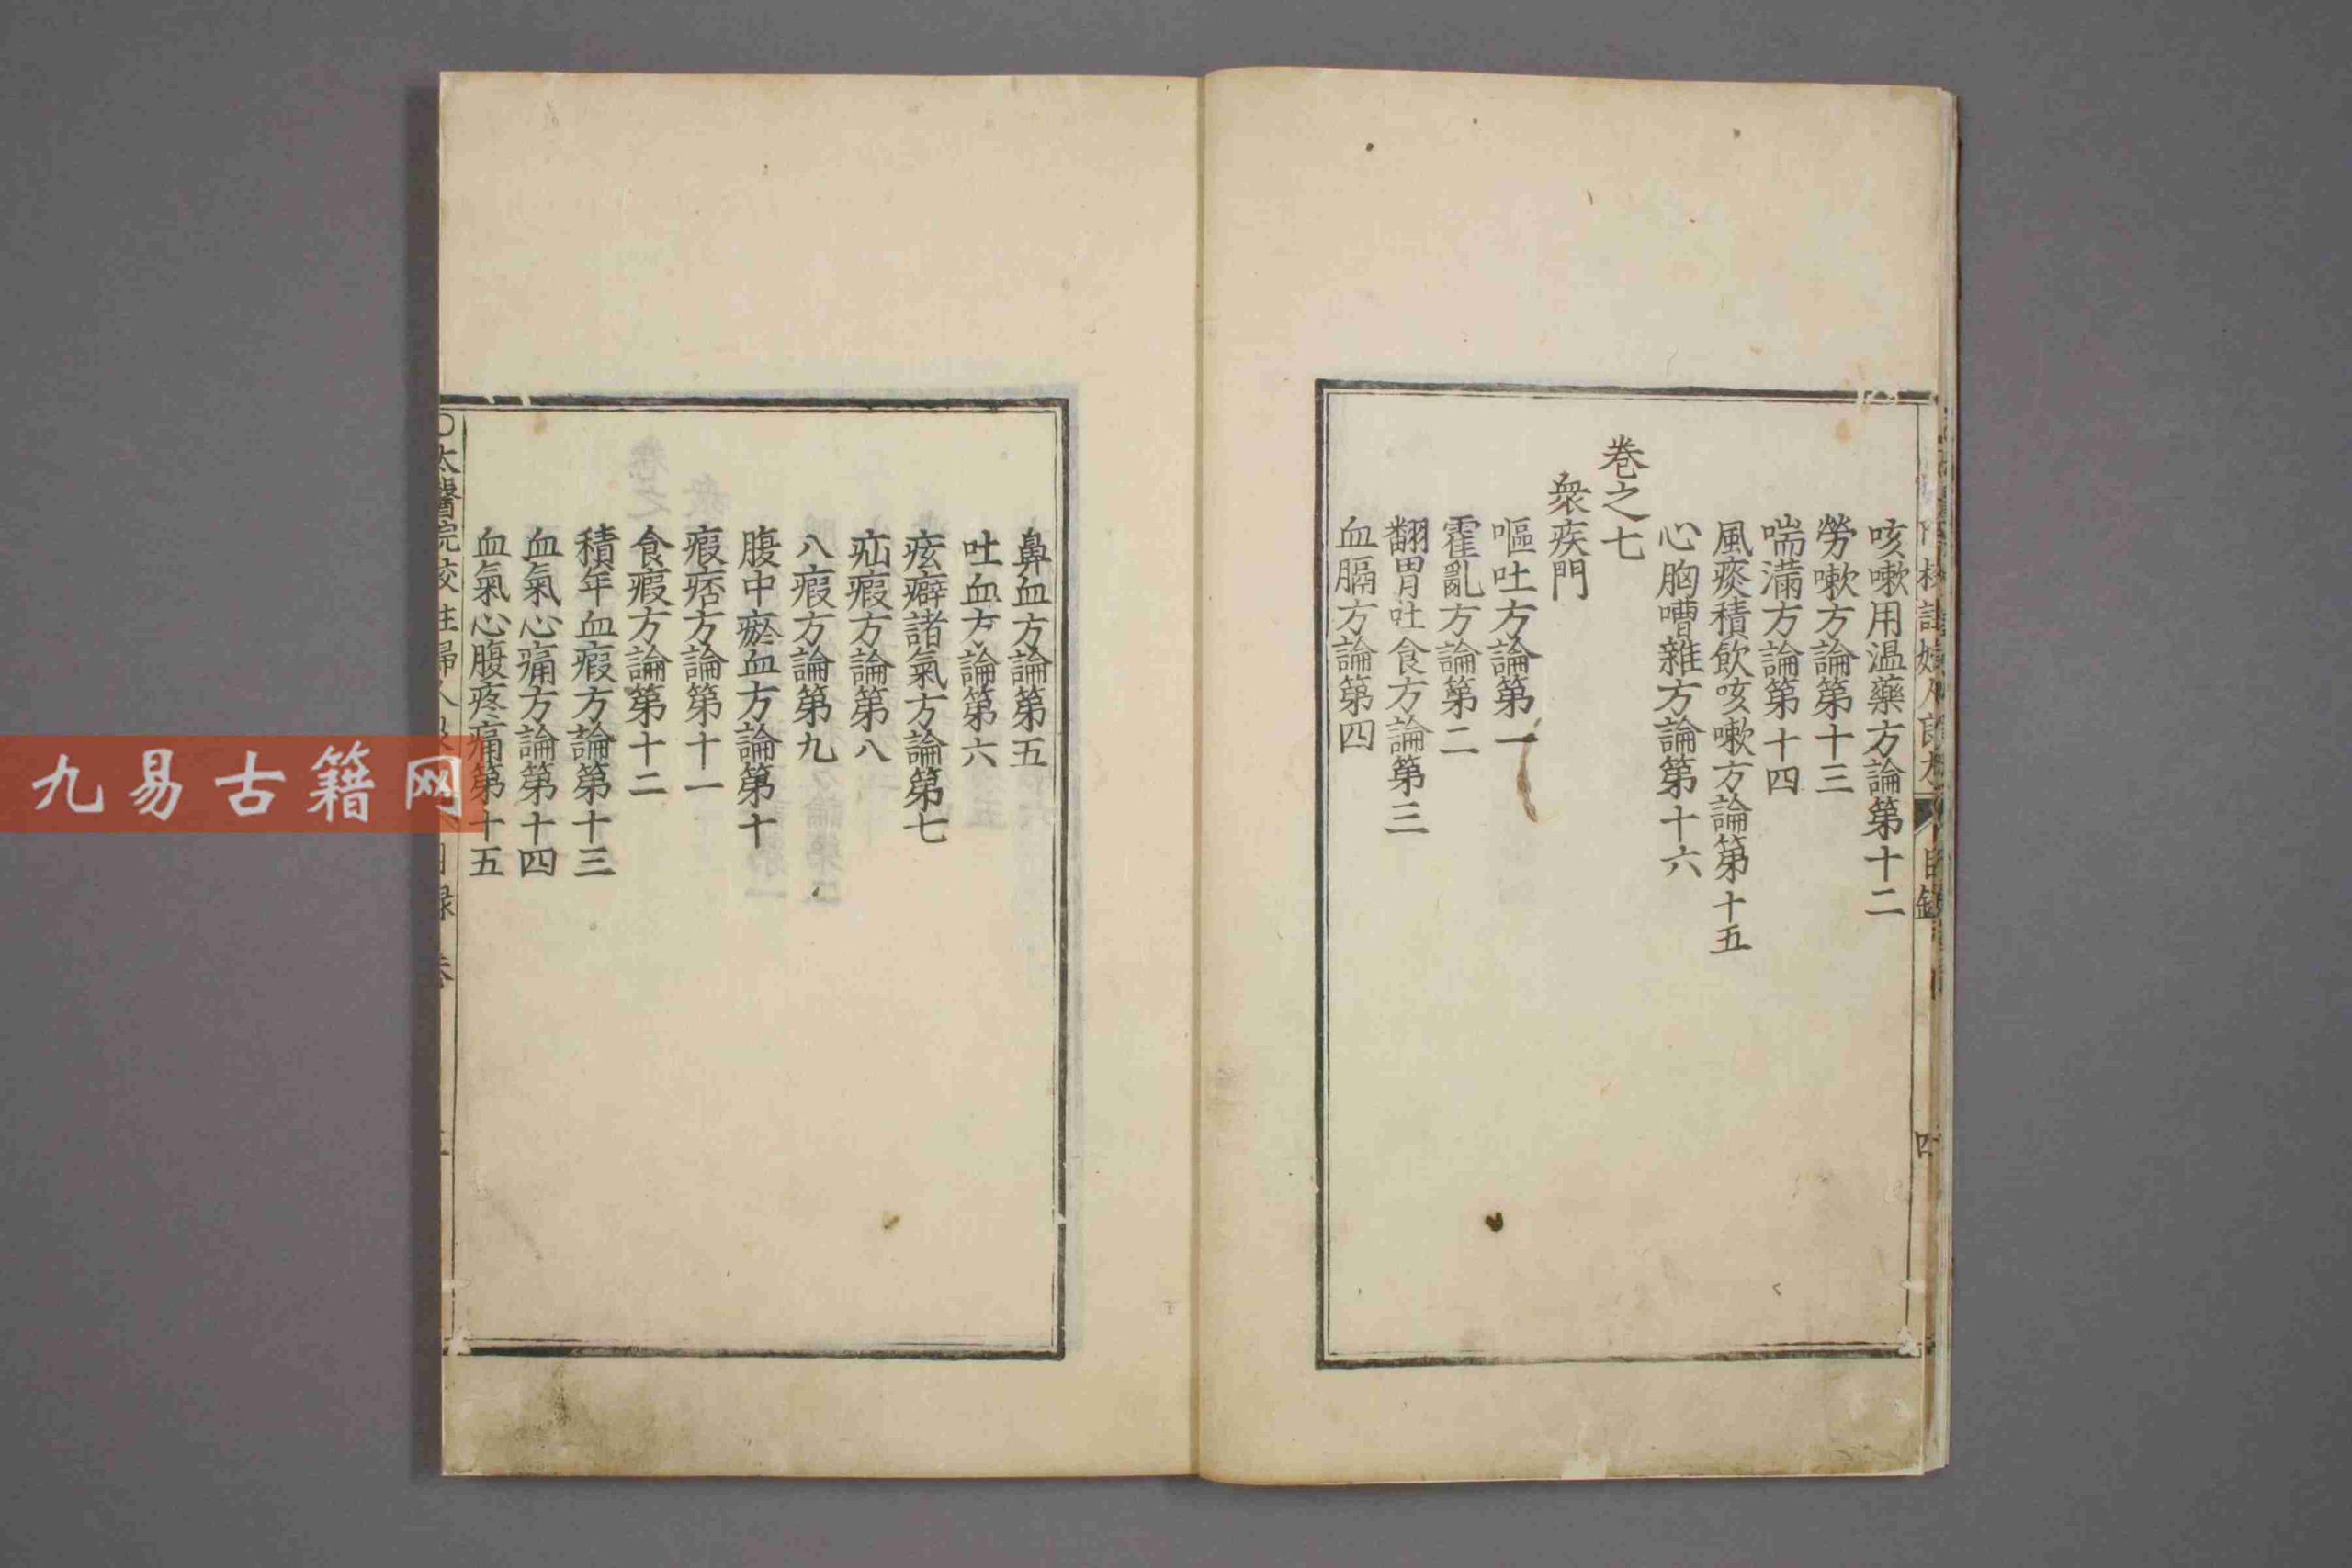 咳嗽用温藥方論第十二
勞嗽方論第十三
喘滿方論第十四
風痰積飲咳嗽方論第十五
心胸嘈雜方論第十六
卷之七
衆疾門
嘔吐方論第一
霍亂方論第二
翻胃吐食方論第三
血膈方論第四
目錄
四
鼻血方論第五
吐血方論第六
痃癖諸氣方論第七
疝瘕方論第八
八瘕方論第九
腹中瘀血方論第十
瘕痞方論第十一
食瘕方論第十二
積年血瘕方論第十三
血氣心痛方論第十四
血氣心腹疼痛第十五
太醫院校註婦人
目錄
九易古籍网